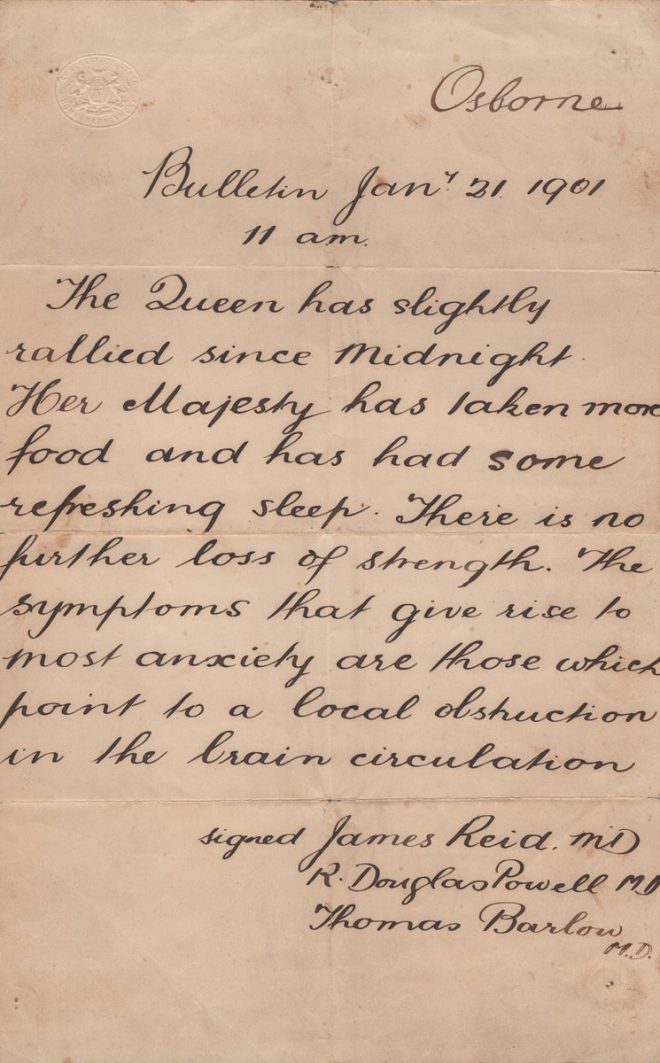 Osborne
Bulletin Janʸ 21 1901
11 am.
The Queen has slightly
rallied since Midnight.
Her Majesty has taken more
food and has had some
refreshing sleep. There is no
further loss of strength. The
symptoms that give rise to
most anxiety are those which
point to a local obstruction
in the brain circulation
signed James Reid. MD
R. Douglas Powell MD
Thomas Barlow
M.D.